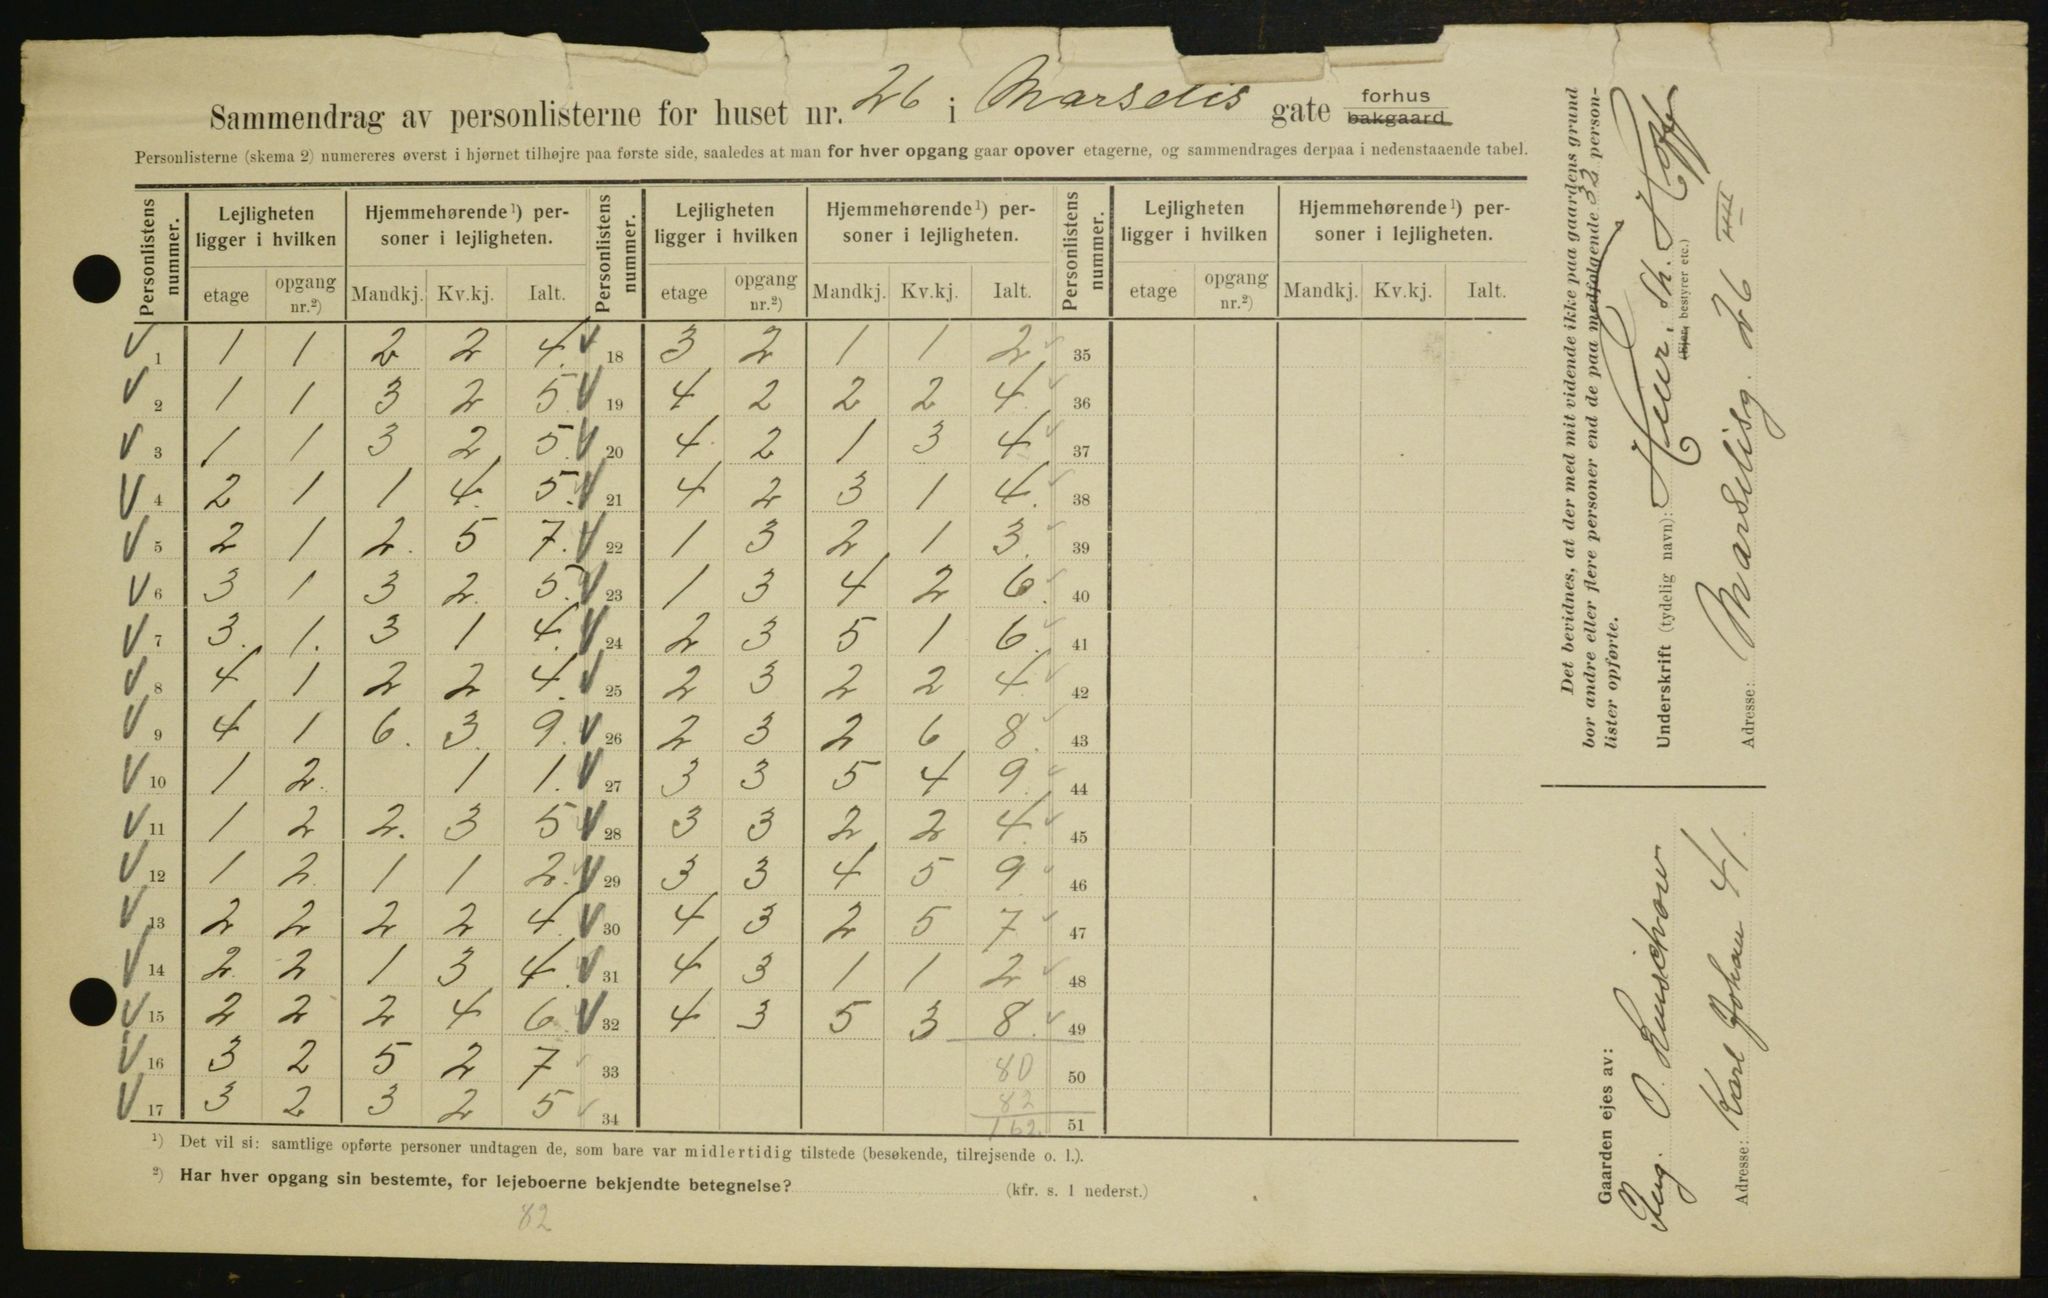 Sammendrag av personlisterne for huset nr. 26 i Marselis gate forhus bakgaard
Personlisterne (skema 2) numereres øverst i hjørnet tilhøjre paa første side, saaledes at man for hver opgang gaar opover etagerne, og sammendrages derpaa i nedenstaaende tabel.
Personlistens nummer. Lejligheten ligger i hvilken Hjemmehørende ¹) personer i lejligheten. Personlistens nummer. Lejligheten ligger i hvilken Hjemmehørende ¹) personer i lejligheten. Personlistens nummer. Lejligheten ligger i hvilken Hjemmehørende ¹) personer i lejligheten.
etage opgang nr.²) Mandkj. Kv.kj. Ialt. etage opgang nr.²) Mandkj. Kv.kj. Ialt. etage opgang nr.²) Mandkj. Kv.kj. Ialt.
1 1 1 2 2 4 18 3 2 1 1 2 35
2 1 1 3 2 5 19 4 2 2 2 4 36
3 1 1 3 2 5 20 4 2 1 3 4 37
4 2 1 1 4 5 21 4 2 3 1 4 38
5 2 1 2 5 7 22 1 3 2 1 3 39
6 3 1 3 2 5 23 1 3 4 2 6 40
7 3 1 3 1 4 24 2 3 5 1 6 41
8 4 1 2 2 4 25 2 3 2 2 4 42
9 4 1 6 3 9 26 2 3 2 6 8 43
10 1 2 1 1 27 3 3 5 4 9 44
11 1 2 2 3 5 28 3 3 2 2 4 45
12 1 2 1 1 2 29 3 3 4 5 9 46
13 2 2 2 2 4 30 4 3 2 5 7 47
14 2 2 1 3 4 31 4 3 1 1 2 48
15 2 2 2 4 6 32 4 3 5 3 8 49
16 3 2 5 2 7 33 80 50
17 3 2 3 2 5 34 82
162 51
¹) Det vil si: samtlige opførte personer undtagen de, som bare var midlertidig tilstede (besøkende, tilrejsende o. l.).
²) Har hver opgang sin bestemte, for lejeboerne bekjendte betegnelse? (kfr. s. 1 nederst.)
82
Det bevidnes, at der med mit vidende ikke paa gaardens grund
bor andre eller flere personer end de paa medfølgende 32 person-
lister opførte.
Underskrift (tydelig navn): Henr. Th. Hoff
(Ejer, bestyrer etc.)
Adresse: Marselisg. 26 IIII
Gaarden ejes av:
Ing. O.
Adresse: Karl Johan 41.